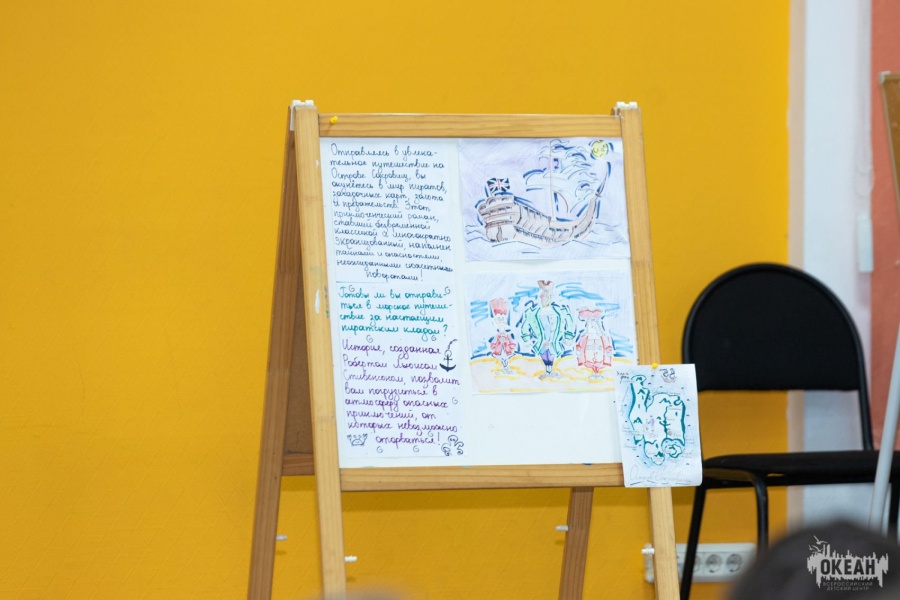 Отправляясь в увлека-
тельное путешествие на
Острове Сокровищ, вы
окунётесь в мир пиратов,
загадочных карт, золота
и предательств. Этот
приключенческий роман,
ставший безвременной
классикой и многократно
экранизованный, наполнен
тайнами и опасностями,
неожиданными сюжетными
поворотами!
Готовы ли вы отправи-
ться в морское путеше-
ствие за настоящим
пиратским кладом?
История, созданная
Робертом Льюисом
Стивенсоном, позволит
вам погрузиться в
атмосферу опасных
приключений, от
которых невозможно
оторваться!
ОКЕАН
ВСЕРОССИЙСКИЙ
ДЕТСКИЙ ЦЕНТР